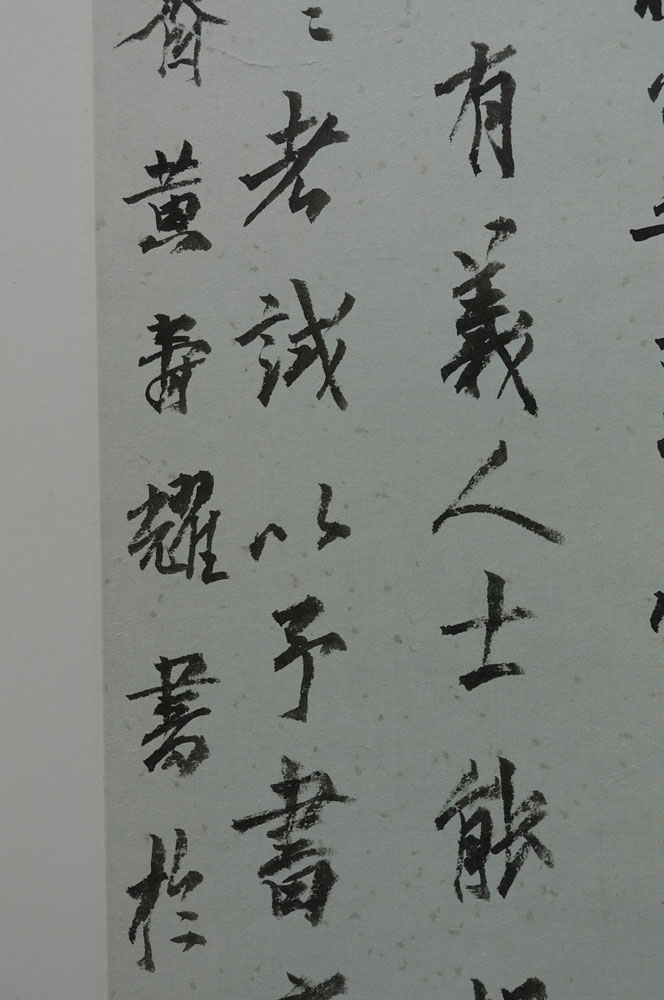 有義人士能
考誠以予書
齋黃壽耀書於